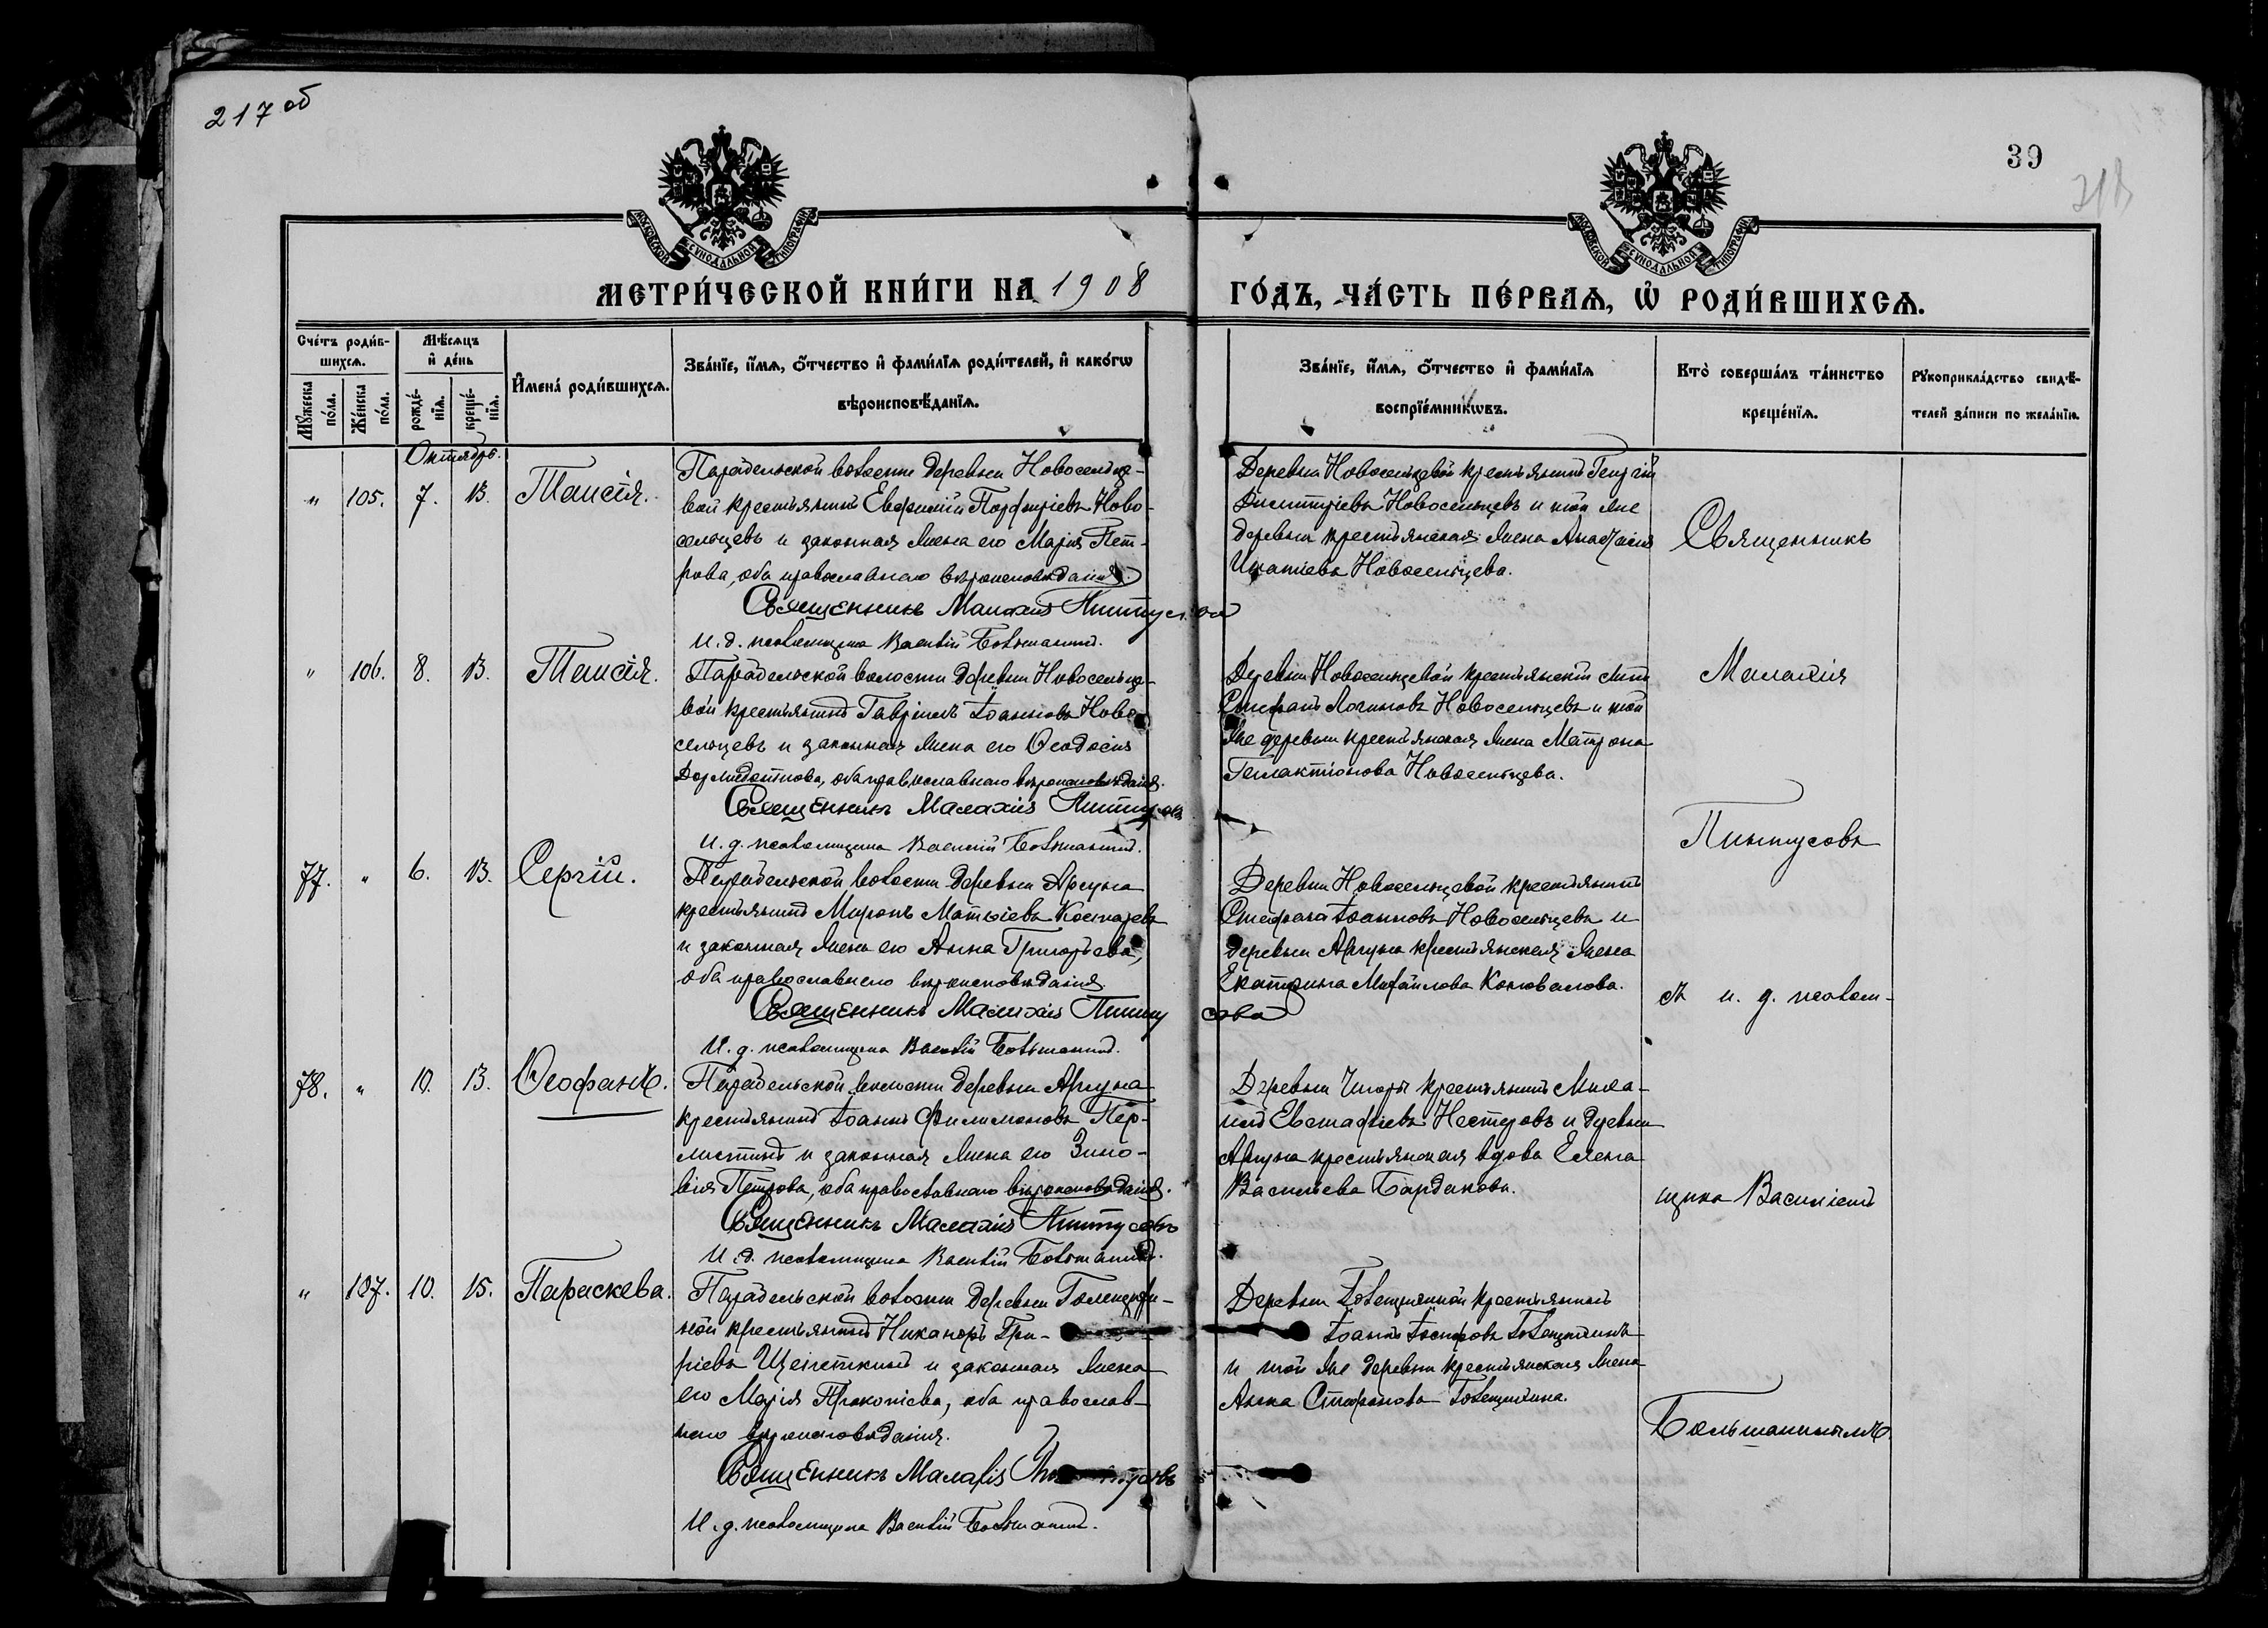 217 об
39
218
МОСКОВСКОЙ СѴНОДАЛЬНОЙ ТИПОГРАФІИ
МОСКОВСКОЙ СѴНОДАЛЬНОЙ ТИПОГРАФІИ
МЕТРИ́ЧЕСКОЙ КНИ́ГИ НА 1908 ГО́ДЪ, ЧА́СТЬ ПЕ́РВАѦ, Ѡ РОДИ́ВШИХСѦ.
Сче́тъ роди́в-
шихсѧ.
Мꙋ́жеска по́ла.
Же́нска по́ла.
Мѣ́сяцъ
и҆ де́нь
рожде́-нїѧ.
креще́-нїѧ.
И҆мена̀ роди́вшихсѧ.
Зва́нїе, и҆́мѧ, ѻ҆́тчество и҆ фами́лїѧ роди́телей, и҆ како́гѡ
вѣроисповѣ́данїѧ.
Зва́нїе, и҆́мѧ, ѻ҆́тчество и҆ фами́лїѧ
воспрїе́мникѡвъ.
Кто̀ соверша́лъ та́инство
креще́нїѧ.
Рꙋкоприкла́дство свидѣ́-
телей за́писи по жела́нїю.
Октябрь.
" 105. 7. 13. Таисія.
Парабельской волости деревни Новосельце-
вой крестьянинъ Евфимій Порфиріевъ Ново-
сельцевъ и законная жена его Марія Пет-
рова, оба православнаго вѣроисповѣданія.
Священникъ Малахія Пинтусовъ
И. д. псаломщика Василій Большанинъ.
Деревни Новосельцевой крестьянинъ Георгій
Димитріевъ Новосельцевъ и той же
деревни крестьянская жена Анастасія
Игнатіева Новосельцева.
" 106. 8. 13. Таисія.
Парабельской волости деревни Новосельце-
вой крестьянинъ Гавріилъ Іоанновъ Ново-
сельцевъ и законная жена его Ѳеодосія
Дормидонтова, оба православнаго вѣроисповѣданія.
Священникъ Малахія Пинтусовъ
И. д. псаломщика Василій Большанинъ.
Деревни Новосельцевой крестьянскій сынъ
Стефанъ Логиновъ Новосельцевъ и той
же деревни крестьянская жена Матрона
Галактіонова Новосельцева.
77. " 6. 13. Сергій.
Парабельской волости деревни Аргуна
крестьянинъ Миронъ Матѳіевъ Костаревъ
и законная жена его Анна Григорьева,
оба православнаго вѣроисповѣданія.
Священникъ Малахія Пинтусовъ
И. д. псаломщика Василій Большанинъ.
Деревни Новосельцевой крестьянинъ
Стефанъ Іоанновъ Новосельцевъ и
деревни Аргуна крестьянская жена
Екатерина Михайлова Коновалова.
78. " 10. 13. Ѳеофанъ.
Парабельской волости деревни Аргуна
крестьянинъ Іоаннъ Филимоновъ Пер-
мистинъ и законная жена его Зино-
вія Петрова, оба православнаго вѣроисповѣданія.
Священникъ Малахія Пинтусовъ
И. д. псаломщика Василій Большанинъ.
Деревни Чигары крестьянинъ Миха-
илъ Евстафіевъ Нестеровъ и деревни
Аргуна крестьянская вдова Елена
Васильева Бардакова.
" 107. 10. 15. Параскева.
Парабельской волости деревни Голещихи-
ной крестьянинъ Никаноръ Гри-
ріевъ и законная жена
его Марія Прокопіева, оба православ-
наго вѣроисповѣданія.
Священникъ Малахія Пинтусовъ
И. д. псаломщика Василій Большанинъ.
Деревни Голещихиной крестьянинъ
Іоаннъ Іосифовъ Голещихинъ
и той же деревни крестьянская жена
Анна Стефанова Голещихина.
Священникъ
Малахія
Пинтусовъ
съ и. д. псалом-
щика Василіемъ
Большанинымъ.